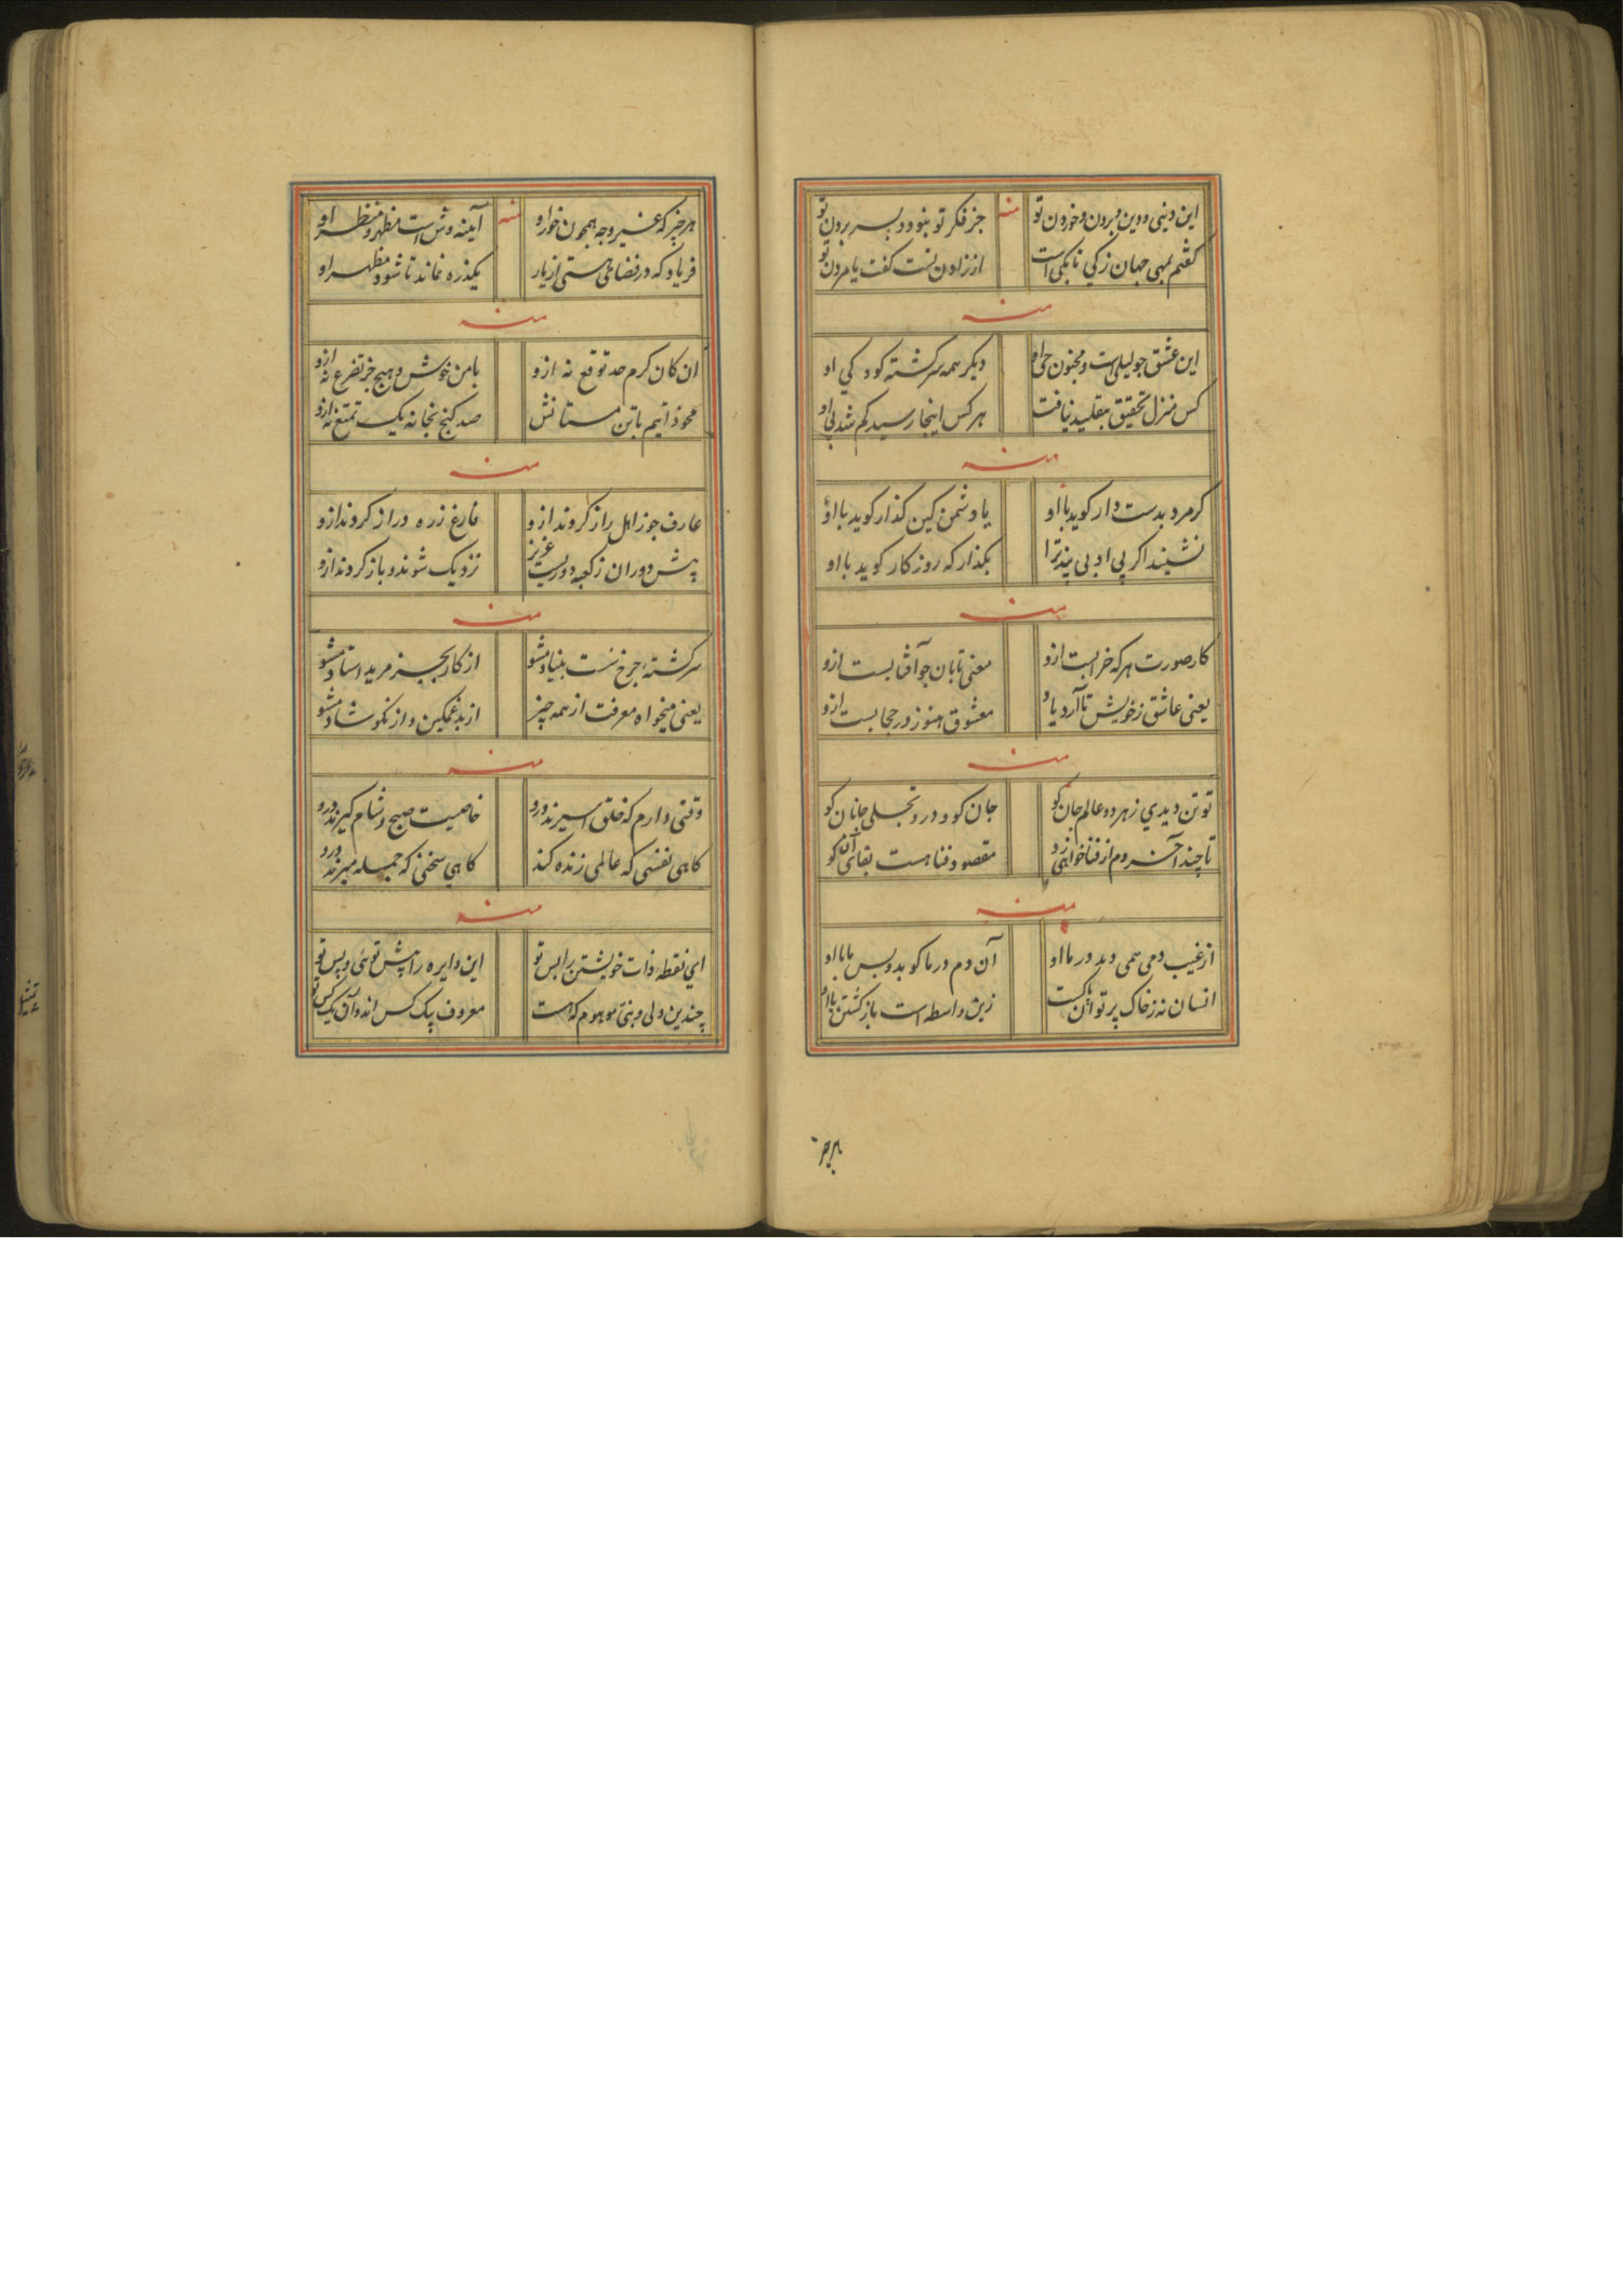 این دنیی و دین و برون و خورون تو منه جز فکر تو نبود و بسر برون تو
گفتم بمهی جهان زکی تا بکی است از زادن تست گفت یا مردن تو
منه
این عشق چو لیلی است و مجنون حی او دیگر همه سرگشته کو و کی او
کس منزل تحقیق بتقلید نیافت هر کس اینجا رسید کم شد پی او
منه
کر مرد بدست دار کوید با او یا دشمن کین کذار کوید با او
نشیند اکر پی ادبی پند ترا بکذار که روزکار کوید با او
منه
کار صورت هر که خرابست ازو معنی تابان چو آفتابست ازو
یعنی عاشق ز خویش تا آرد یاد معشوق هنوز در حجابست ازو
منه
تو تن دیدی ز هر دو عالم جان کو جان کو و درو تجلی جانان کو
تا چند آخر دم از فنا خواهی زد مقصود فنا هست بقای آن کو
منه
از غیب دمی همی دمد در ما او آن دم در ما کوبد و بس با ما او
انسان نه ز خاک پرتو آن زین واسطه است باز کشتن با او
هر چیز
هر چیز که غیر وجه همچون خور او منه آیینه وش است مظهر و منظر او
فریاد که در فضای هستی از یار یکذره نماند تا شود مظهر او
منه
ان کان کرم حد توقع نه ازو با من خوش و هیچ جز تضرع نه ازو
محو ذاتیم با تن مستانش صد کنج بخانه یک تمتع نه ازو
منه
عارف چو ز اهل راز کردند ازو فارغ ز ره دراز کردند ازو
پیش دوران ز کعبه دوریست عزیز نزدیک شوند و باز کردند ازو
منه
سرکشته چرخ سست بنیاد مشو از کار بجز مرید استاد مشو
یعنی میخواه معرفت از همه چیز از بد غمکین و از نکو شاد مشو
منه
وقتی دارم که خلق اسیرند درو خاصیت صبح و شام کیرند درو
کاهی نفسی که عالمی زنده کند کاهی سخنی که جمله میرند درو
منه
ای نقطه ذات خویشتن را بس تو این دایره را پیش توئی و پس تو
چندین ولی و نبی موهوم که هست معروف یک کس اند و آن یک کس تو